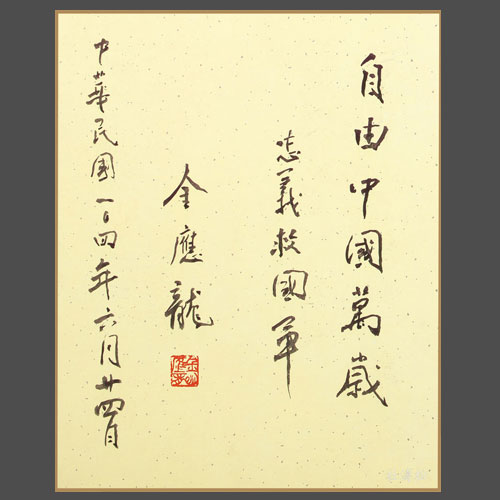 自由中國萬歲
忠義救國軍
金應龍
中華民國一〇四年六月廿四日